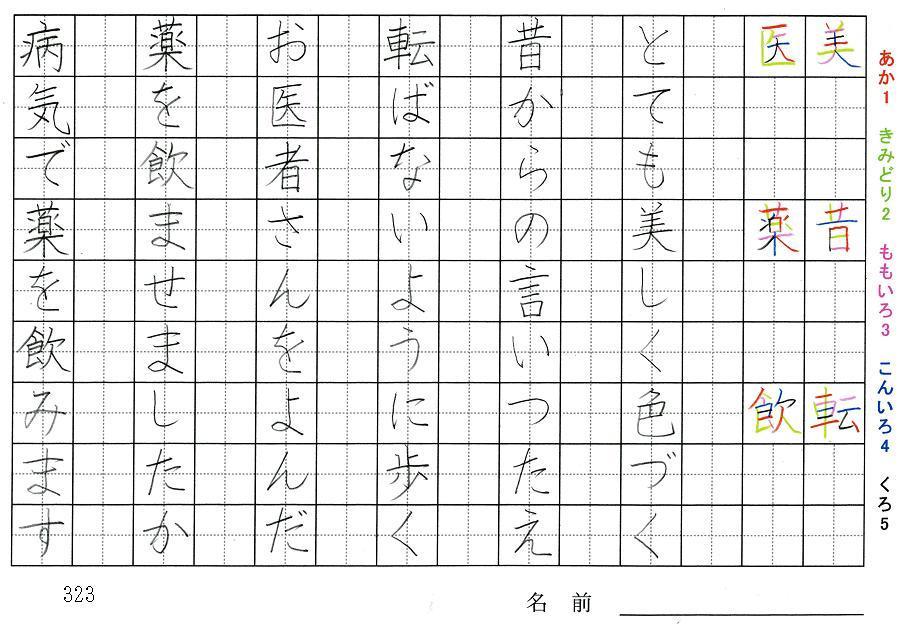 あか1 きみどり2 ももいろ3 こんいろ4 くろ5
美 昔 転
医 薬 飲
とても美しく色づく
昔からの言いつたえ
転ばないように歩く
お医者さんをよんだ
薬を飲ませましたか
病気で薬を飲みます
323
名前